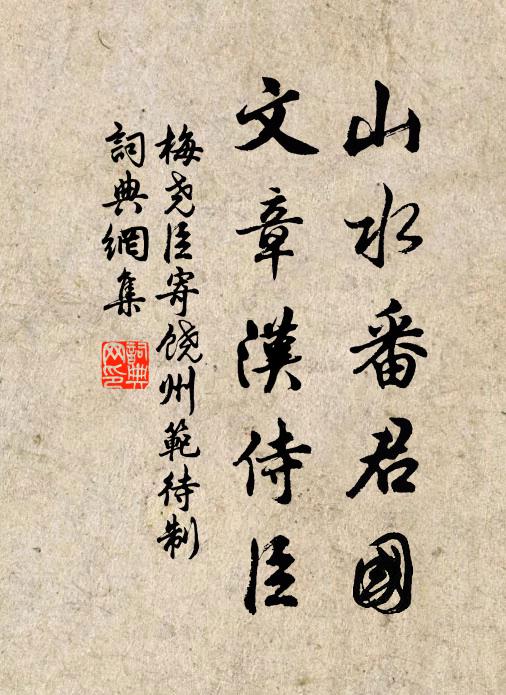 山水番君國
文章漢侍臣
梅尧臣寄饶州範待制
詞典網集
詞典网印